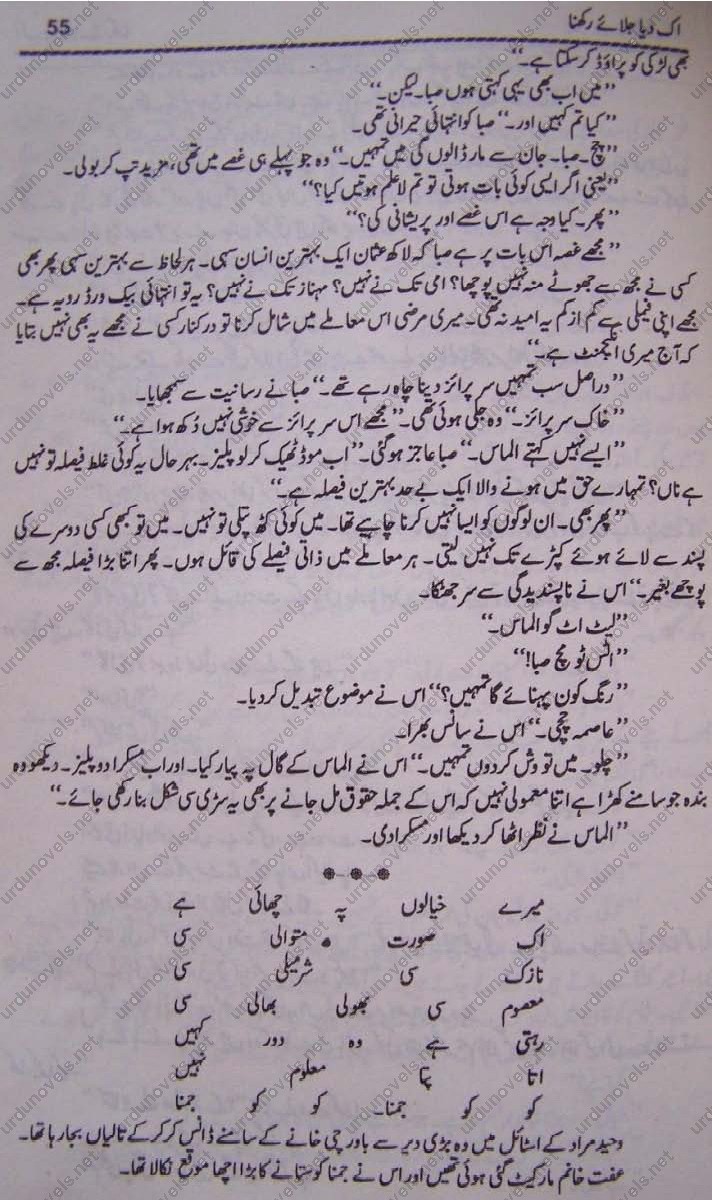 اک دیا جلائے رکھنا 55
بھی لڑکی کو پراؤڈ کر سکتا ہے۔‘‘
’’میں اب بھی یہی کہتی ہوں صبا۔ لیکن۔‘‘
’’کیا تم کہیں اور۔‘‘ صبا کو انتہائی حیرانی تھی۔
’’پچ۔ صبا۔ جان سے مار ڈالوں گی میں تمہیں۔‘‘ وہ جو پہلے ہی غصے میں تھی، مزید تپ کر بولی۔
’’یعنی اگر ایسی کوئی بات ہوتی تو تم لاعلم ہوتیں کیا؟‘‘
’’پھر۔ کیا وجہ ہے اس غصے اور پریشانی کی؟‘‘
’’مجھے غصہ اس بات پر ہے صبا کہ لاکھ عثمان ایک بہترین انسان سہی۔ ہر لحاظ سے بہترین سہی پھر بھی
کسی نے مجھ سے جھوٹے منہ نہیں پوچھا؟ امی تک نے نہیں؟ مہناز تک نے نہیں؟ یہ تو انتہائی بیک ورڈ رویہ ہے۔
مجھے اپنی فیملی سے کم از کم یہ امید نہ تھی۔ میری مرضی اس معاملے میں شامل کرنا تو درکنار کسی نے مجھے یہ بھی نہیں بتایا
کہ آج میری انگیجمنٹ ہے۔‘‘
’’دراصل سب تمہیں سرپرائز دینا چاہ رہے تھے۔‘‘ صبا نے رسانیت سے سمجھایا۔
’’خاک سرپرائز۔‘‘ وہ جلی ہوئی تھی۔ ’’مجھے اس سرپرائز سے خوشی نہیں دُکھ ہوا ہے۔‘‘
’’ایسے نہیں کہتے الماس۔‘‘ صبا عاجز ہوگئی۔ ’’اب موڈ ٹھیک کر لو پلیز۔ بہرحال یہ کوئی غلط فیصلہ تو نہیں
ہے ناں؟ تمہارے حق میں ہونے والا ایک بے حد بہترین فیصلہ ہے۔‘‘
’’پھر بھی۔ ان لوگوں کو ایسا نہیں کرنا چاہیے تھا۔ میں کوئی کٹھ پتلی تو نہیں۔ میں تو کبھی کسی دوسرے کی
پسند سے لائے ہوئے کپڑے تک نہیں لیتی۔ ہر معاملے میں ذاتی فیصلے کی قائل ہوں۔ پھر اتنا بڑا فیصلہ مجھ سے
پوچھے بغیر۔‘‘ اس نے ناپسندیدگی سے سر جھٹکا۔
’’لیٹ اٹ گو الماس۔‘‘
’’اٹس ٹو مچ صبا!‘‘
’’رنگ کون پہنائے گا تمہیں؟‘‘ اس نے موضوع تبدیل کردیا۔
’’عاصمہ چچی۔‘‘ اس نے سانس بھرا۔
’’چلو۔ میں تو وش کردوں تمہیں۔‘‘ اس نے الماس کے گال پہ پیار کیا۔ اور اب مسکرا دو پلیز۔ دیکھو وہ
بندہ جو سامنے کھڑا ہے اتنا معمولی نہیں کہ اس کے جملہ حقوق مل جانے پر بھی یہ سڑی سی شکل بنا رکھی جائے۔‘‘
’’الماس نے نظر اٹھا کر دیکھا اور مسکرا دی۔
میرے خیالوں پہ چھائی ہے
اک صورت متوالی سی
نازک سی شرمیلی سی
معصوم سی بھولی بھالی سی
رہتی ہے وہ دور کہیں
اتا پتا معلوم نہیں
کو کو جمنا۔ کو کو جمنا
وحید مراد کے اسٹائل میں وہ بڑی دیر سے باورچی خانے کے سامنے ڈانس کر کر کے تالیاں بجا رہا تھا۔
عفت خانم مارکیٹ گئی ہوئی تھیں اور اس نے جمنا کو ستانے کا بڑا اچھا موقع نکالا تھا۔
urdunovels.net